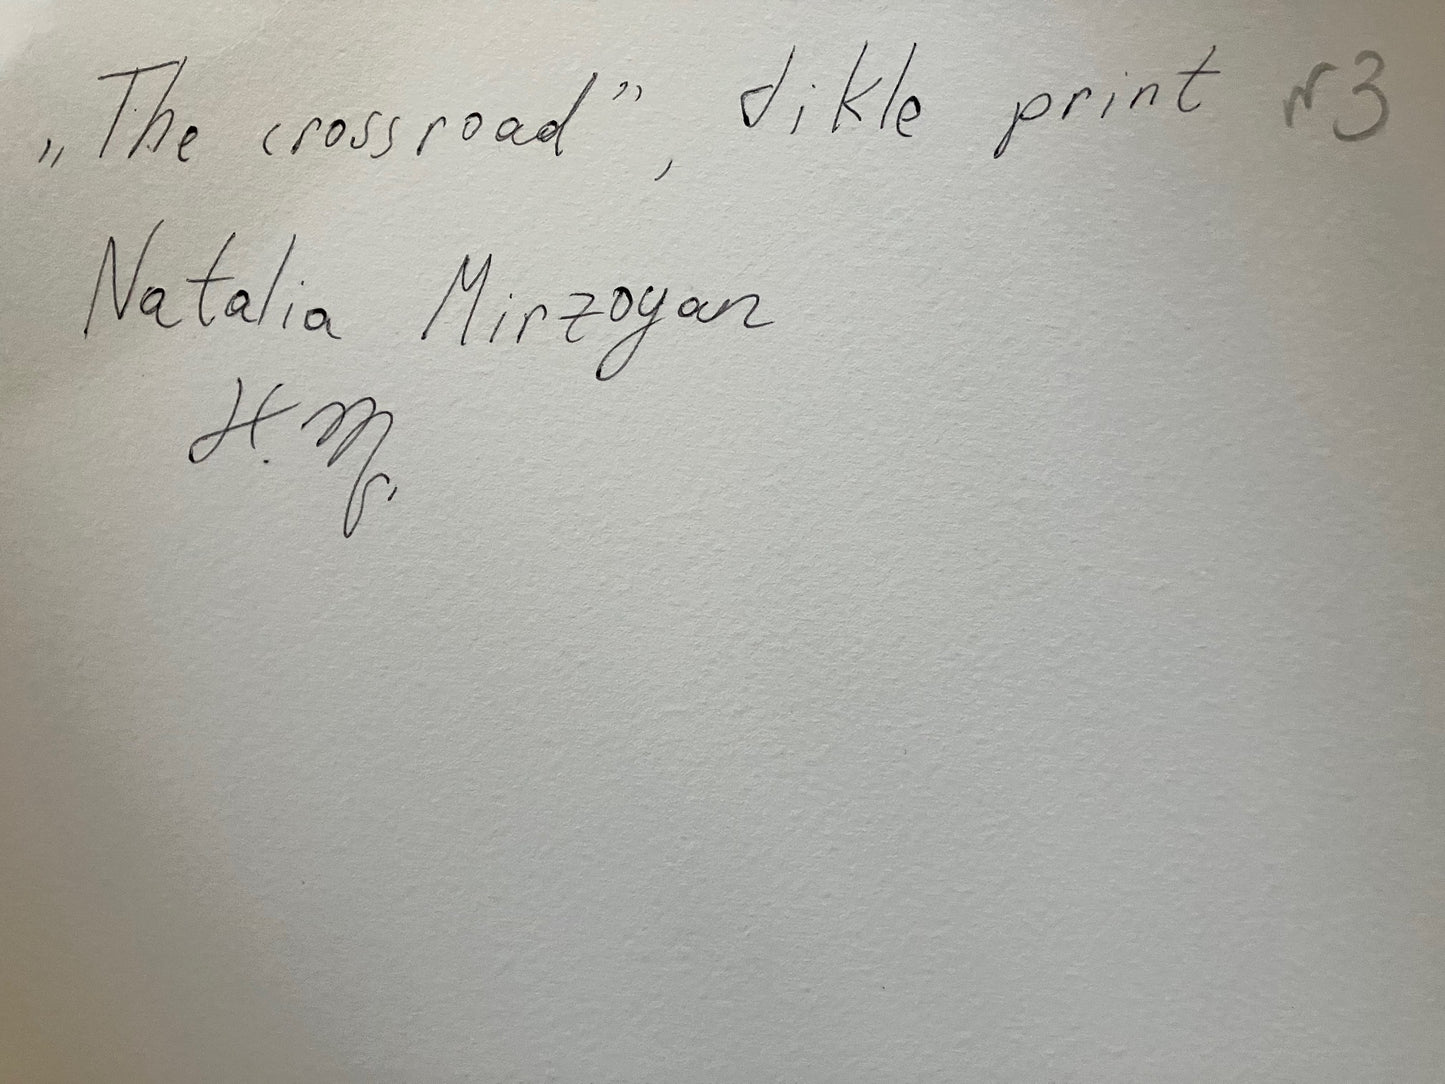 „The crossroad”, dikle print №3
Natalia Mirzoyan
Н.М